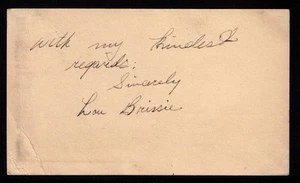 with my kindest
regards:
Sincerely
Lou Brissie